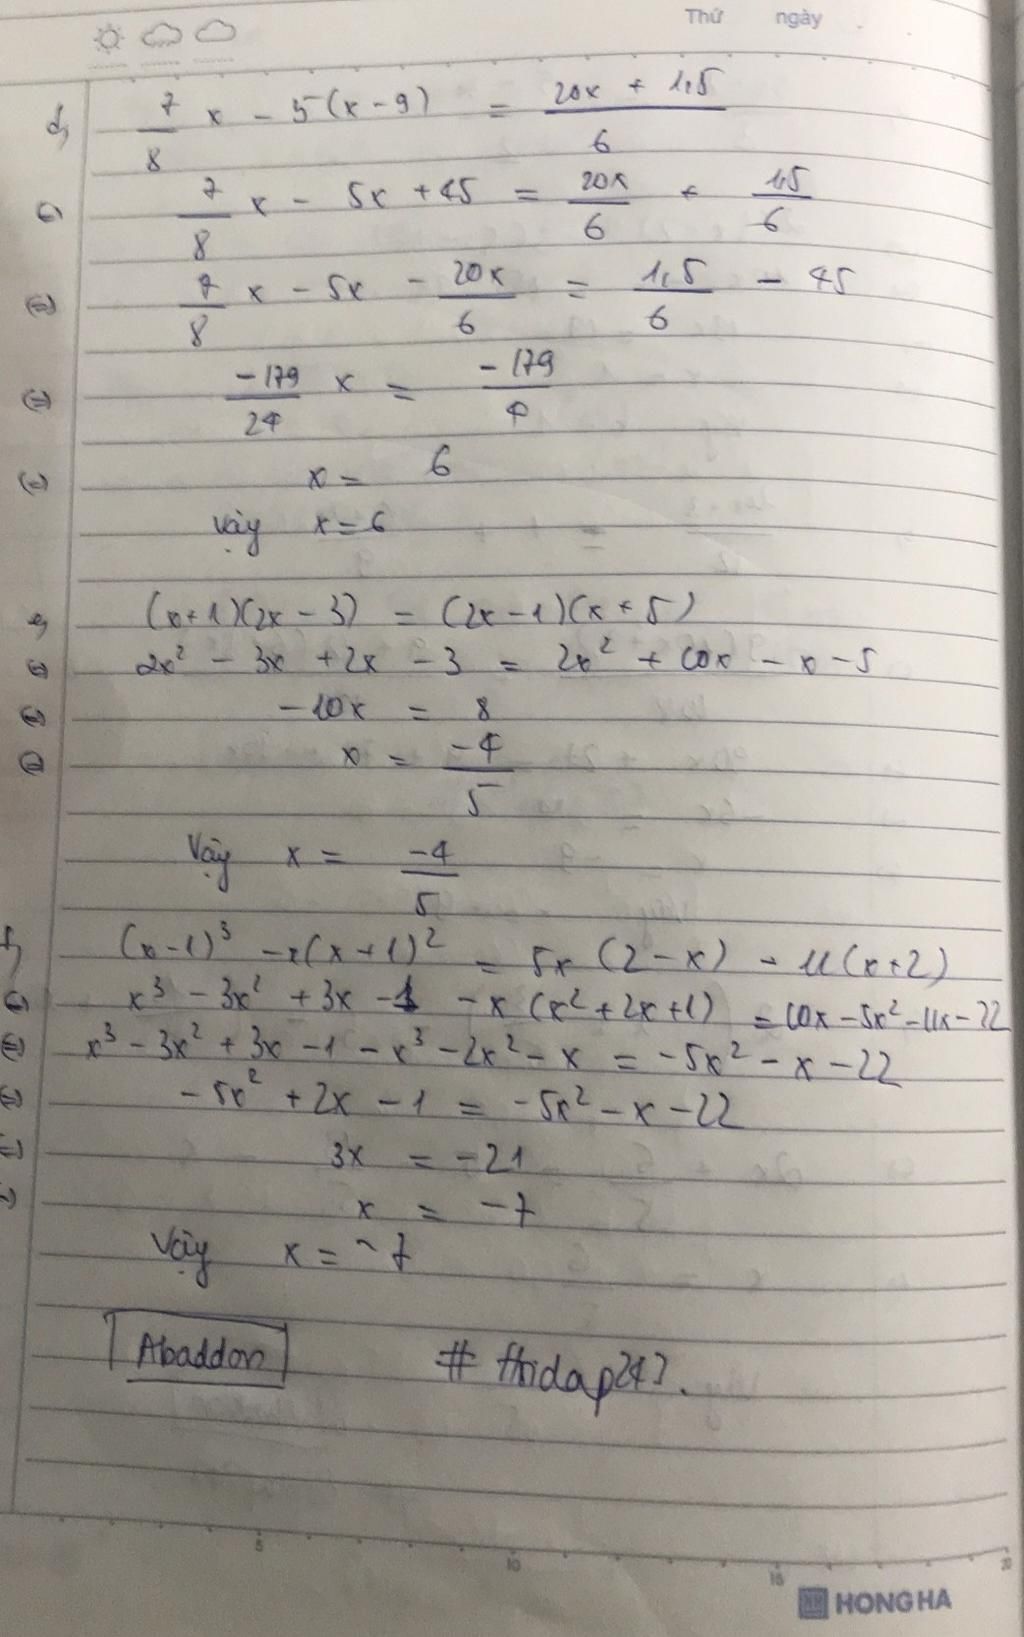 Thứ ngày
d, 7/8 x - 5(x - 9) = (20x + 1,5)/6
⇔ 7/8 x - 5x + 45 = 20x/6 + 1,5/6
⇔ 7/8 x - 5x - 20x/6 = 1,5/6 - 45
⇔ -179/24 x = -179/4
⇔ x = 6
Vậy x = 6
e, (x+1)(2x - 3) = (2x - 1)(x + 5)
⇔ 2x² - 3x + 2x - 3 = 2x² + 10x - x - 5
⇔ -10x = 8
⇔ x = -4/5
Vậy x = -4/5
f, (x - 1)³ - x(x + 1)² = 5x (2 - x) - 11(x + 2)
⇔ x³ - 3x² + 3x - 1 - x (x² + 2x + 1) = 10x - 5x² - 11x - 22
⇔ x³ - 3x² + 3x - 1 - x³ - 2x² - x = -5x² - x - 22
⇔ -5x² + 2x - 1 = -5x² - x - 22
⇔ 3x = -21
⇔ x = -7
Vậy x = -7
Abaddon # Hoidap247.
5 10 15 20
HONG HA